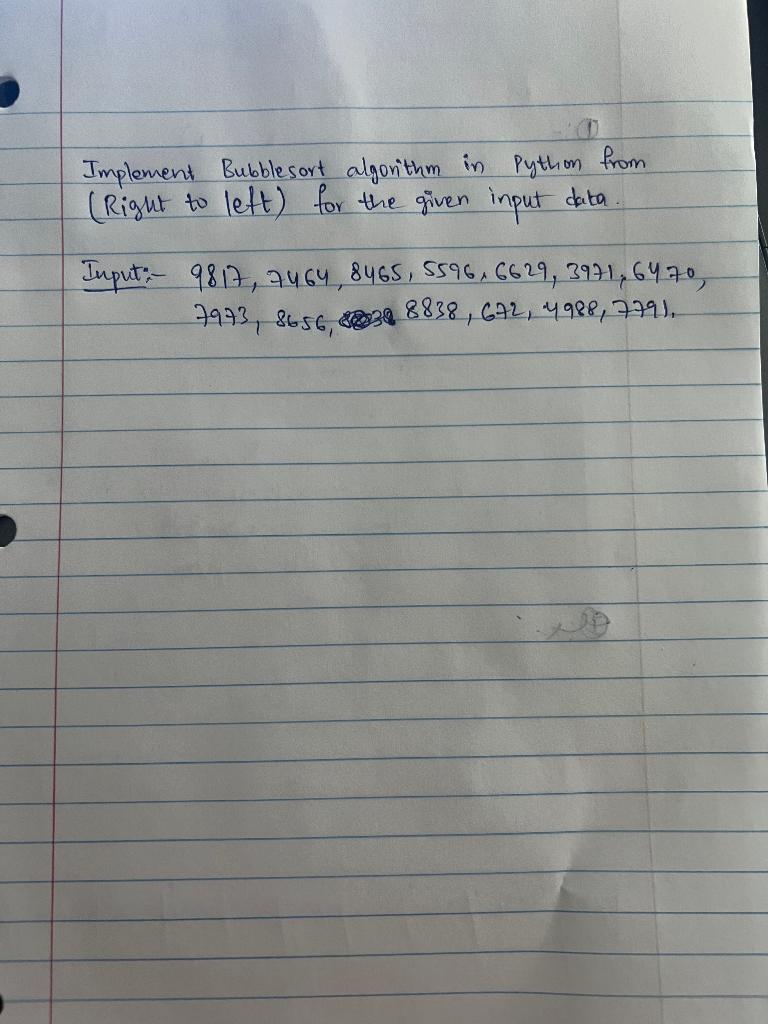 Implement Bubblesort algorithm in Python from
(Right to left) for the given input data.
Input:- 9817, 7464, 8465, 5596, 6629, 3971, 6470,
7973, 8656, 8838, 672, 4988, 7791.